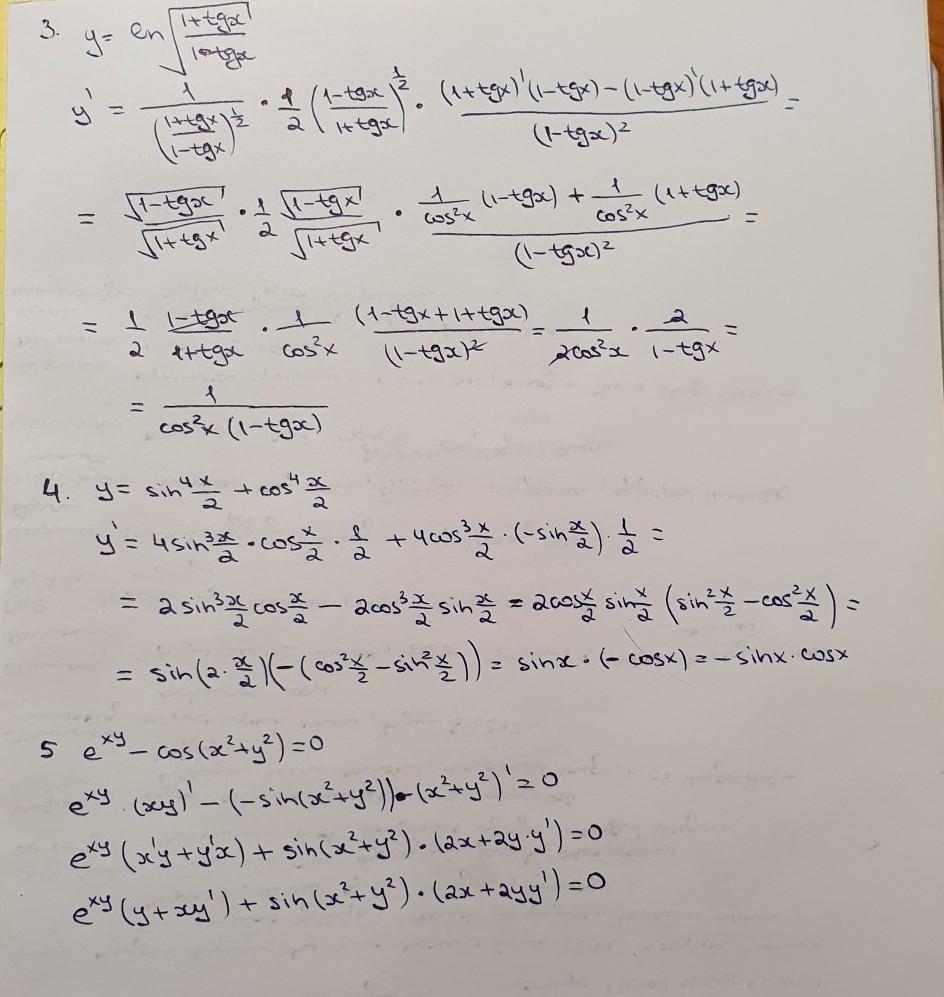 3. y = ln √((1+tgx)/(1-tgx))
y' = 1/((1+tgx)/(1-tgx))^(1/2) · 1/2 ((1-tgx)/(1+tgx))^(1/2) · ((1+tgx)'(1-tgx) - (1-tgx)'(1+tgx))/(1-tgx)² =
= √(1-tgx)/√(1+tgx) · 1/2 √(1-tgx)/√(1+tgx) · (1/cos²x (1-tgx) + 1/cos²x (1+tgx))/(1-tgx)² =
= 1/2 (1-tgx)/(1+tgx) · 1/cos²x (1-tgx+1+tgx)/(1-tgx)² = 1/(2cos²x) · 2/(1-tgx) =
= 1/(cos²x (1-tgx))
4. y = sin⁴ x/2 + cos⁴ x/2
y' = 4sin³ x/2 · cos x/2 · 1/2 + 4cos³ x/2 · (-sin x/2) · 1/2 =
= 2sin³ x/2 cos x/2 - 2cos³ x/2 sin x/2 = 2cos x/2 sin x/2 (sin² x/2 - cos² x/2) =
= sin(2·x/2)(-(cos² x/2 - sin² x/2)) = sinx · (-cosx) = -sinx·cosx
5 e^(xy) - cos(x²+y²) = 0
e^(xy) · (xy)' - (-sin(x²+y²)) · (x²+y²)' = 0
e^(xy) (x'y + y'x) + sin(x²+y²) · (2x+2y·y') = 0
e^(xy) (y+xy') + sin(x²+y²) · (2x+2yy') = 0